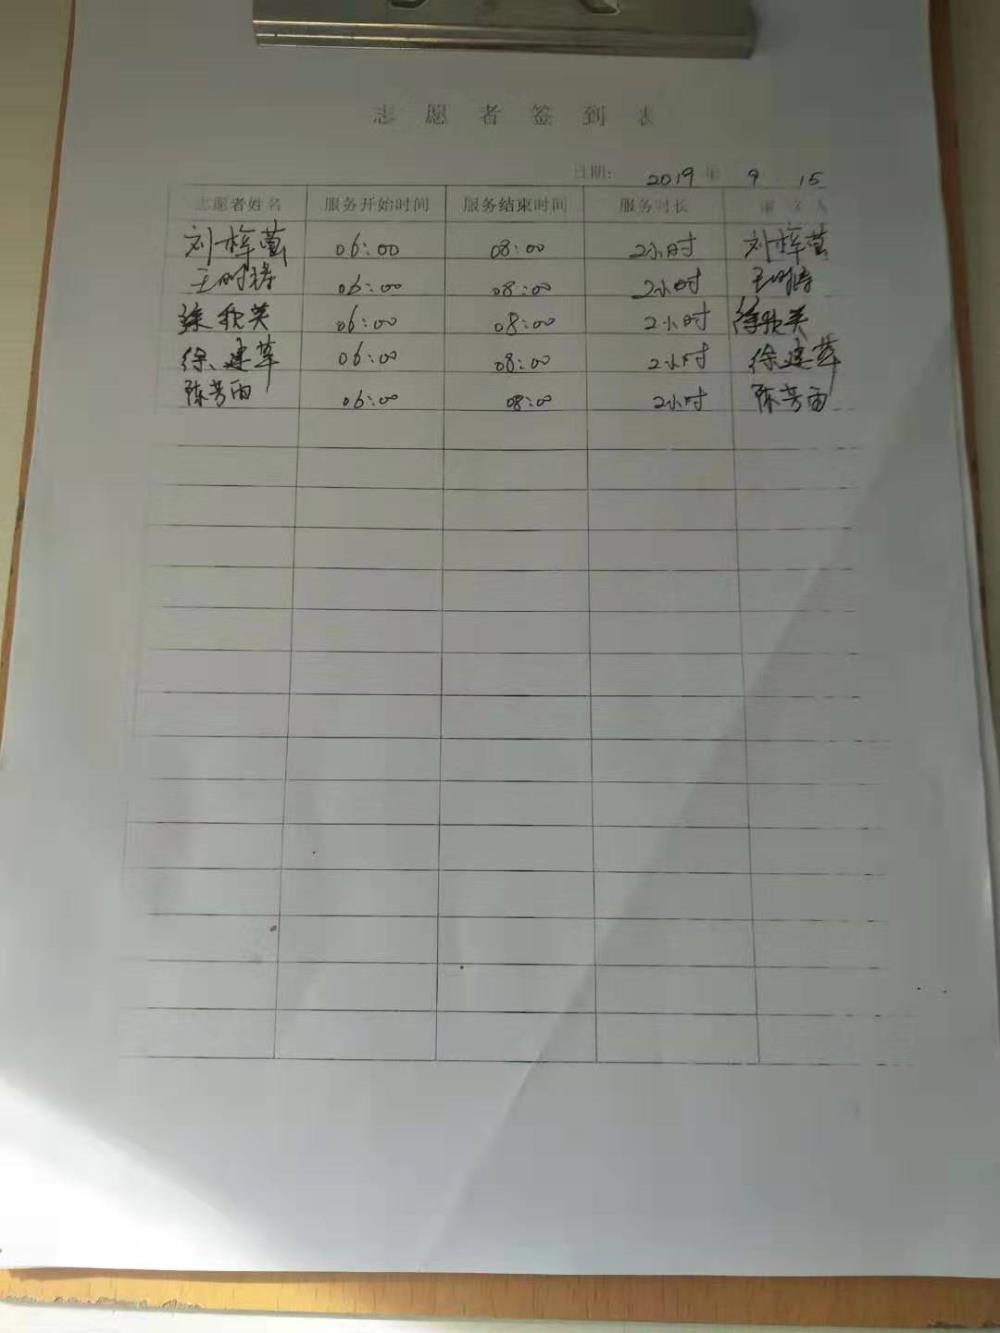 志愿者签到表
日期： 2019 年 9 15
志愿者姓名 服务开始时间 服务结束时间 服务时长 人
刘梓萤 06:00 08:00 2小时 刘梓萤
王时 06:00 08:00 2小时 王时
徐 英 06:00 08:00 2小时 徐 英
徐建萍 06:00 08:00 2小时 徐建萍
陈芳雨 06:00 08:00 2小时 陈芳雨